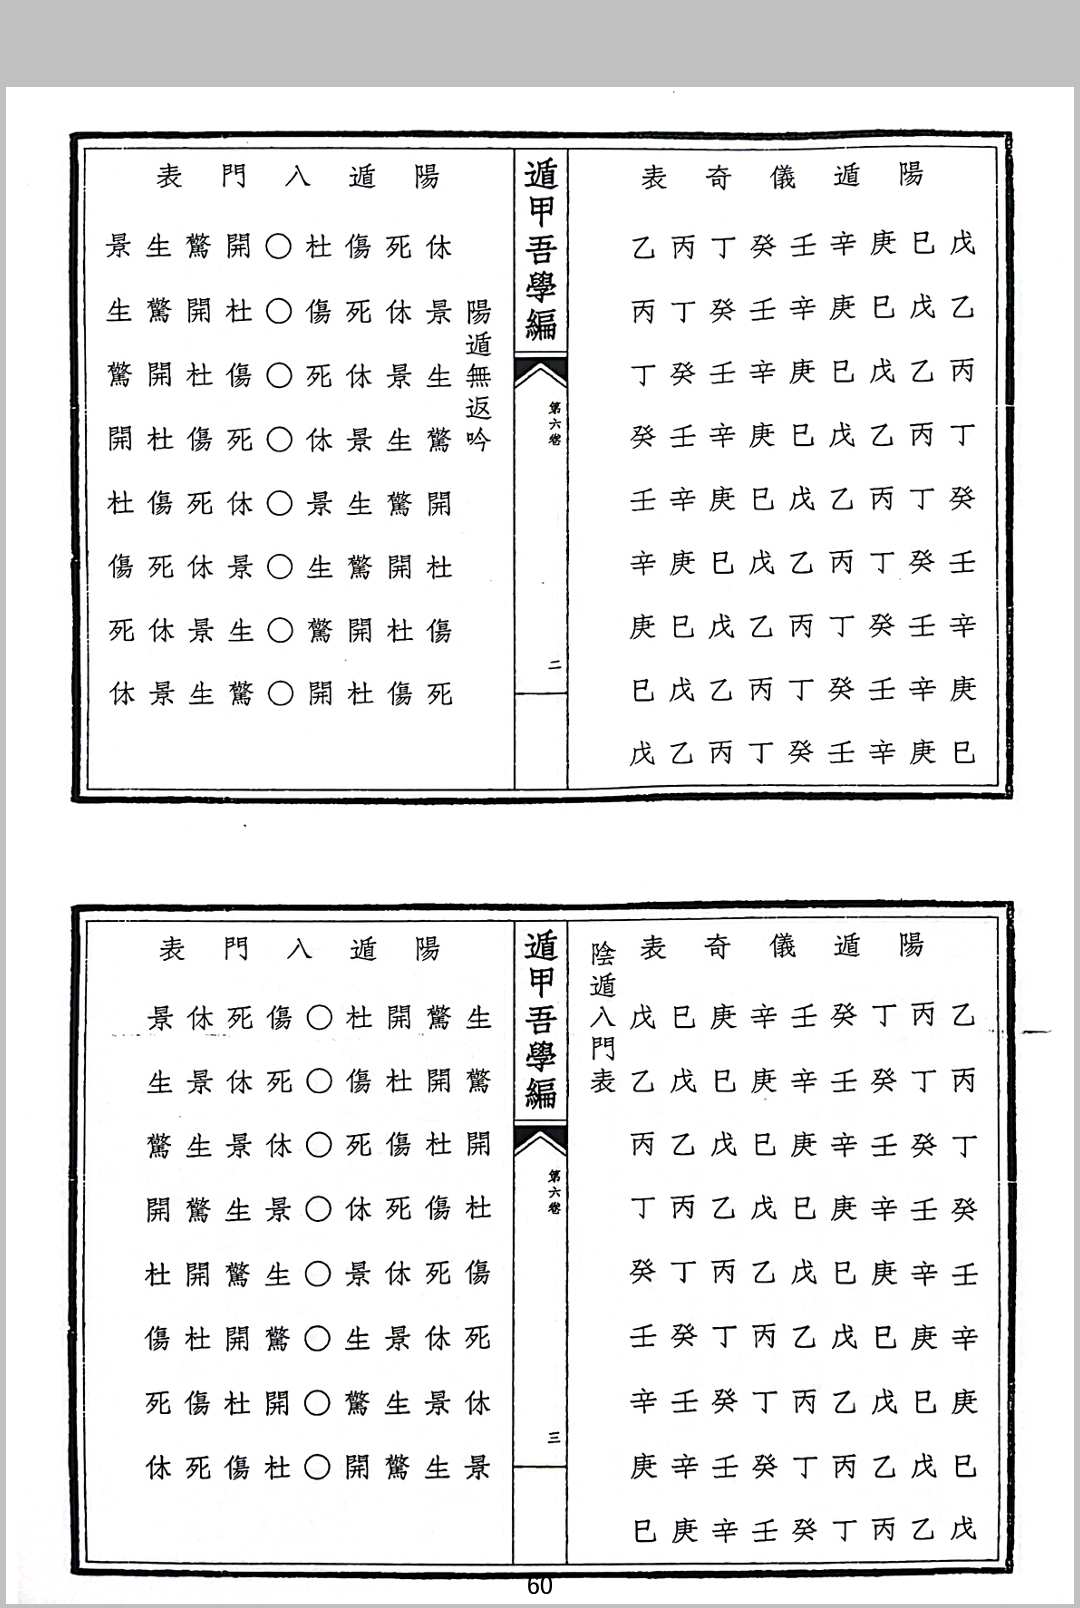 陽遁儀奇表
戊乙丙丁癸壬辛庚巳
巳戊乙丙丁癸壬辛庚
庚巳戊乙丙丁癸壬辛
辛庚巳戊乙丙丁癸壬
壬辛庚巳戊乙丙丁癸
癸壬辛庚巳戊乙丙丁
丁癸壬辛庚巳戊乙丙
丙丁癸壬辛庚巳戊乙
乙丙丁癸壬辛庚巳戊
遁甲吾學編
第六卷
二
陽遁入門表
陽遁無返吟
休景生驚開杜傷死
死休景生驚開杜傷
傷死休景生驚開杜
杜傷死休景生驚開
○○○○○○○○
開杜傷死休景生驚
驚開杜傷死休景生
生驚開杜傷死休景
景生驚開杜傷死休
陽遁儀奇表
乙丙丁癸壬辛庚巳戊
丙丁癸壬辛庚巳戊乙
丁癸壬辛庚巳戊乙丙
癸壬辛庚巳戊乙丙丁
壬辛庚巳戊乙丙丁癸
辛庚巳戊乙丙丁癸壬
庚巳戊乙丙丁癸壬辛
巳戊乙丙丁癸壬辛庚
戊乙丙丁癸壬辛庚巳
陰遁入門表
遁甲吾學編
第六卷
三
陽遁入門表
生驚開杜傷死休景
驚開杜傷死休景生
開杜傷死休景生驚
杜傷死休景生驚開
○○○○○○○○
傷死休景生驚開杜
死休景生驚開杜傷
休景生驚開杜傷死
景生驚開杜傷死休
60